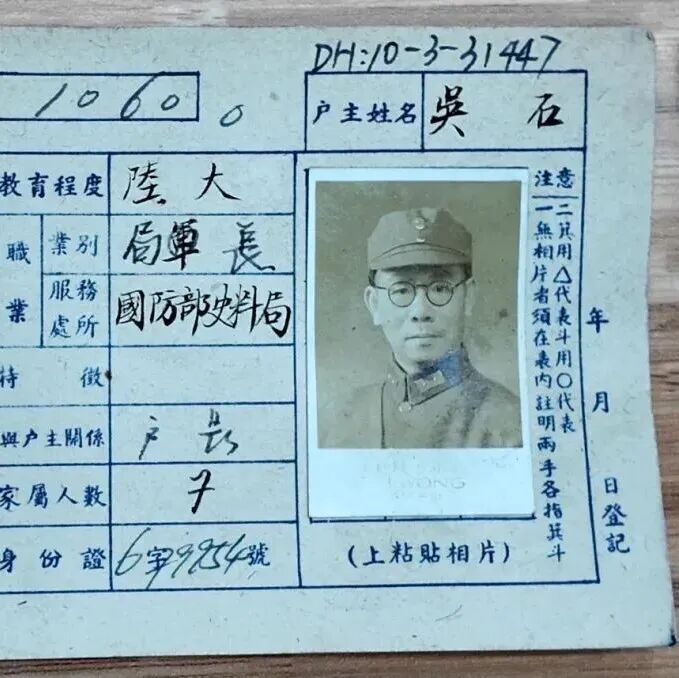 DH:10-3-31447
10600
户主姓名 吳石
教育程度 陸大
職業 業別 軍 局長
服務處所 國防部史料局
特徵
與户主關係 户長
家屬人數 7
身份證 6字9954號
(上粘貼相片)
注意
一無相片者須在表內註明兩手各指箕斗
二箕用△代表斗用○代表
年 月 日登記